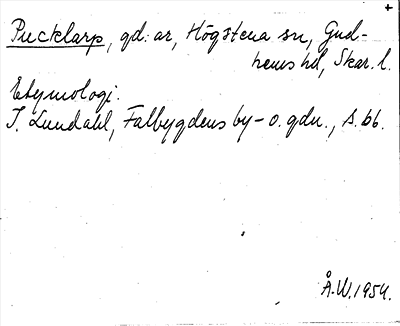 +
Pucklarp, gd: ar, Högstena sn, Gud-
hems hd, Skar. l.
Etymologi.
I. Lundahl, Falbygdens by- o. gdn., s. 66.
Å.W. 1954.